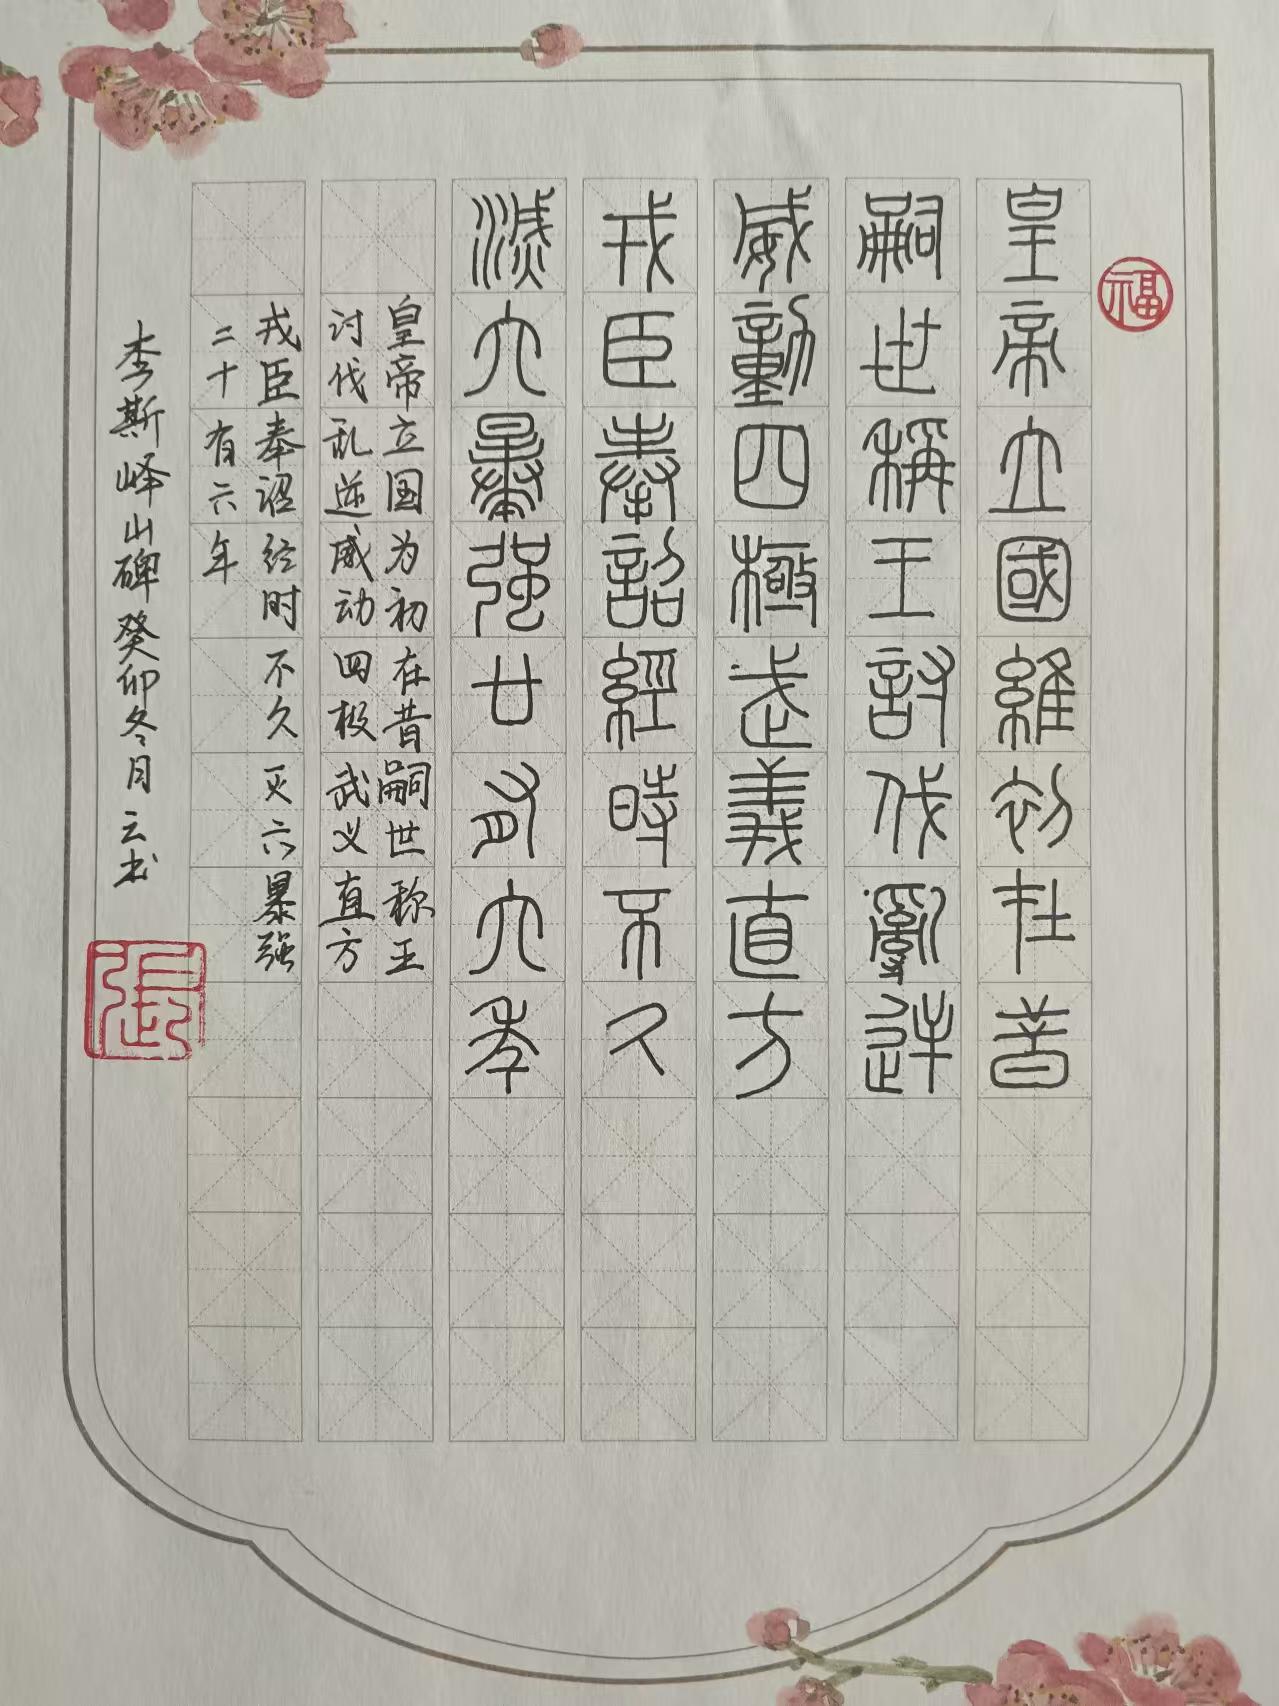 福
皇帝立國維初在昔
嗣世稱王討伐亂逆
威動四極武義直方
戎臣奉詔經時不久
滅六暴強廿有六年
皇帝立国为初在昔嗣世称王
讨伐乱逆威动四极武义直方
戎臣奉诏经时不久灭六暴强
二十有六年
李斯峄山碑癸卯冬月云书
張